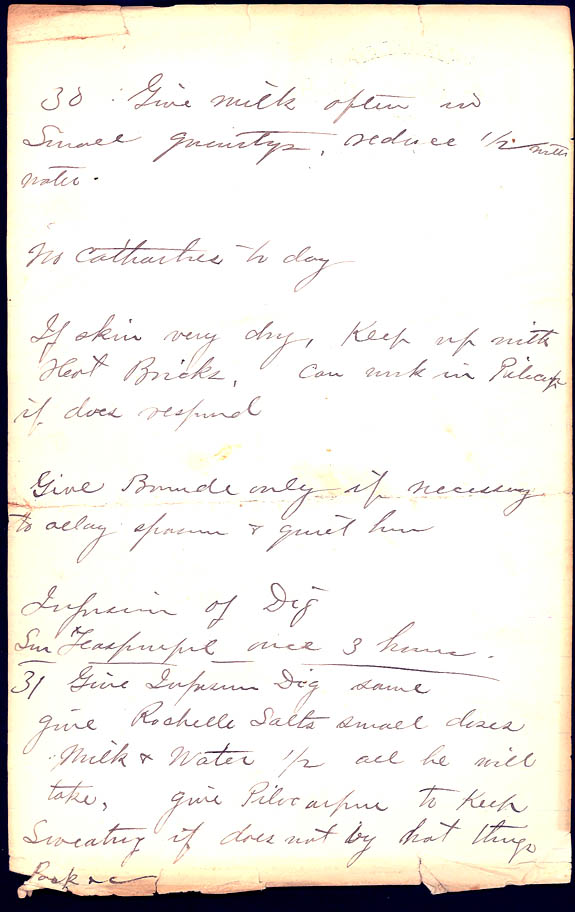 30 Give milk often in
Small quantitys, reduce 1/2 with
water.
No Cathartics to day
If skin very dry, Keep up with
Hot Bricks, Can work in Pilocarp
if does respond
Give Bromide only if necessary
to allay spasm & quiet him
Infusion of Dig
Sm Teaspoonful once 3 hours.
31 Give Infusion Dig same
give Rochelle Salts small doses
Milk & Water 1/2 all he will
take, give Pilocarpine to Keep
Sweating if does not by hot things
Pack &c